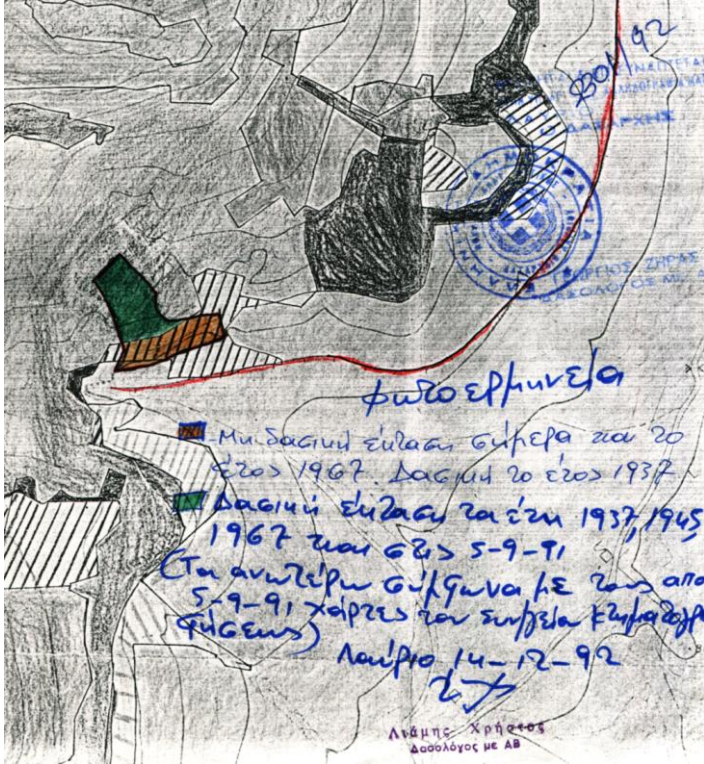 ΒΟΜ 92
Ο ΔΑΣΑΡΧΗΣ
ΓΕΩΡΓΙΟΣ ΖΗΡΑΣ
ΔΑΣΟΛΟΓΟΣ Μ. Δ
φωτοερμηνεία
Μη δασική έκταση σήμερα και το
έτος 1967. Δασική το έτος 1937
Δασική έκταση τα έτη 1937, 1945,
1967 και στις 5-9-91
(Τα ανωτέρω σύμφωνα με τους από
5-9-91 χάρτες του συνεργείου κτηματογρα
φήσεως)
Λαύριο 14-12-92
Λιάμης Χρήστος
Δασολόγος με ΑΒ